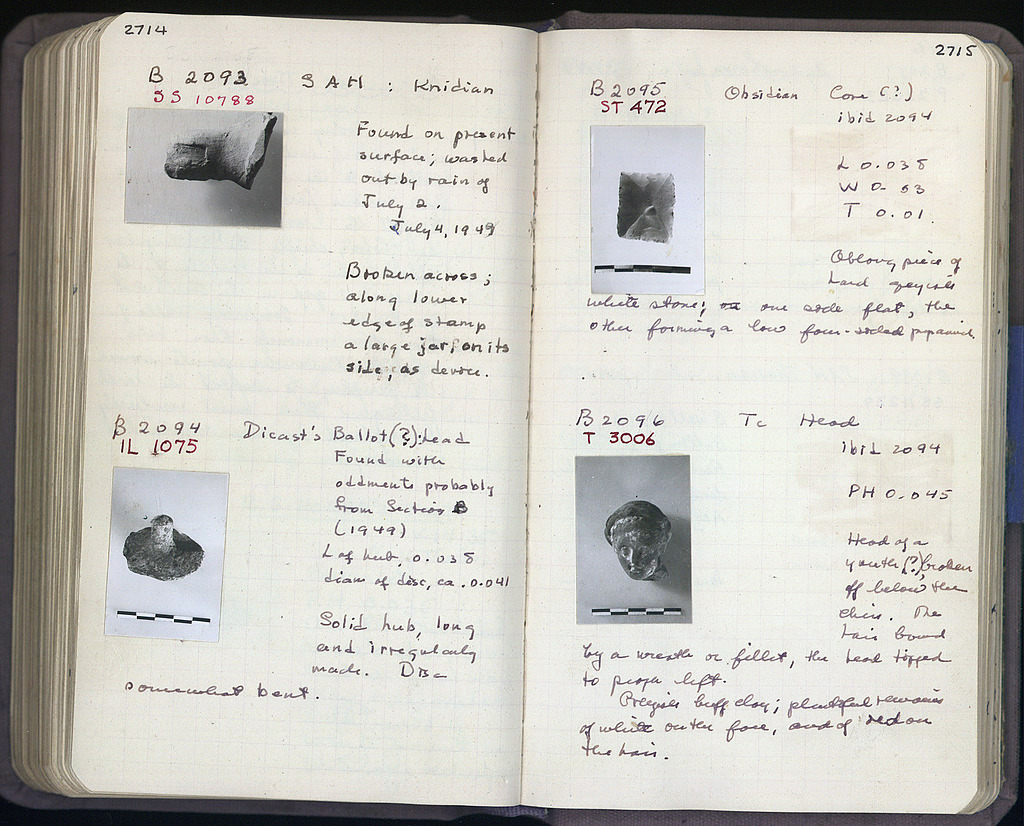 2714
B 2093
SS 10788
SAH : Knidian
Found on present
surface; washed
out by rain of
July 2.
July 4, 1949
Broken across;
along lower
edge of stamp
a large jar, on its
side, as device.
B 2094
IL 1075
Dicast's Ballot(?): Lead
Found with
oddments probably
from Section B
(1949)
L of hub, 0.038
diam of disc, ca. 0.041
Solid hub, long
and irregularly
made. Disc
somewhat bent.
2715
B 2095
ST 472
Obsidian Core (?)
ibid 2094
L 0.038
W 0- 53
T 0.01.
Oblong piece of
hard greyish
white stone; one side flat, the
other forming a low four-sided pyramid.
B 2096
T 3006
Tc Head
ibid 2094
PH 0.045
Head of a
youth (?) broken
off below the
chin. The
hair bound
by a wreath or fillet, the head tipped
to proper left.
buff clay; plentiful remains
of white on the face, and of red on
the hair.